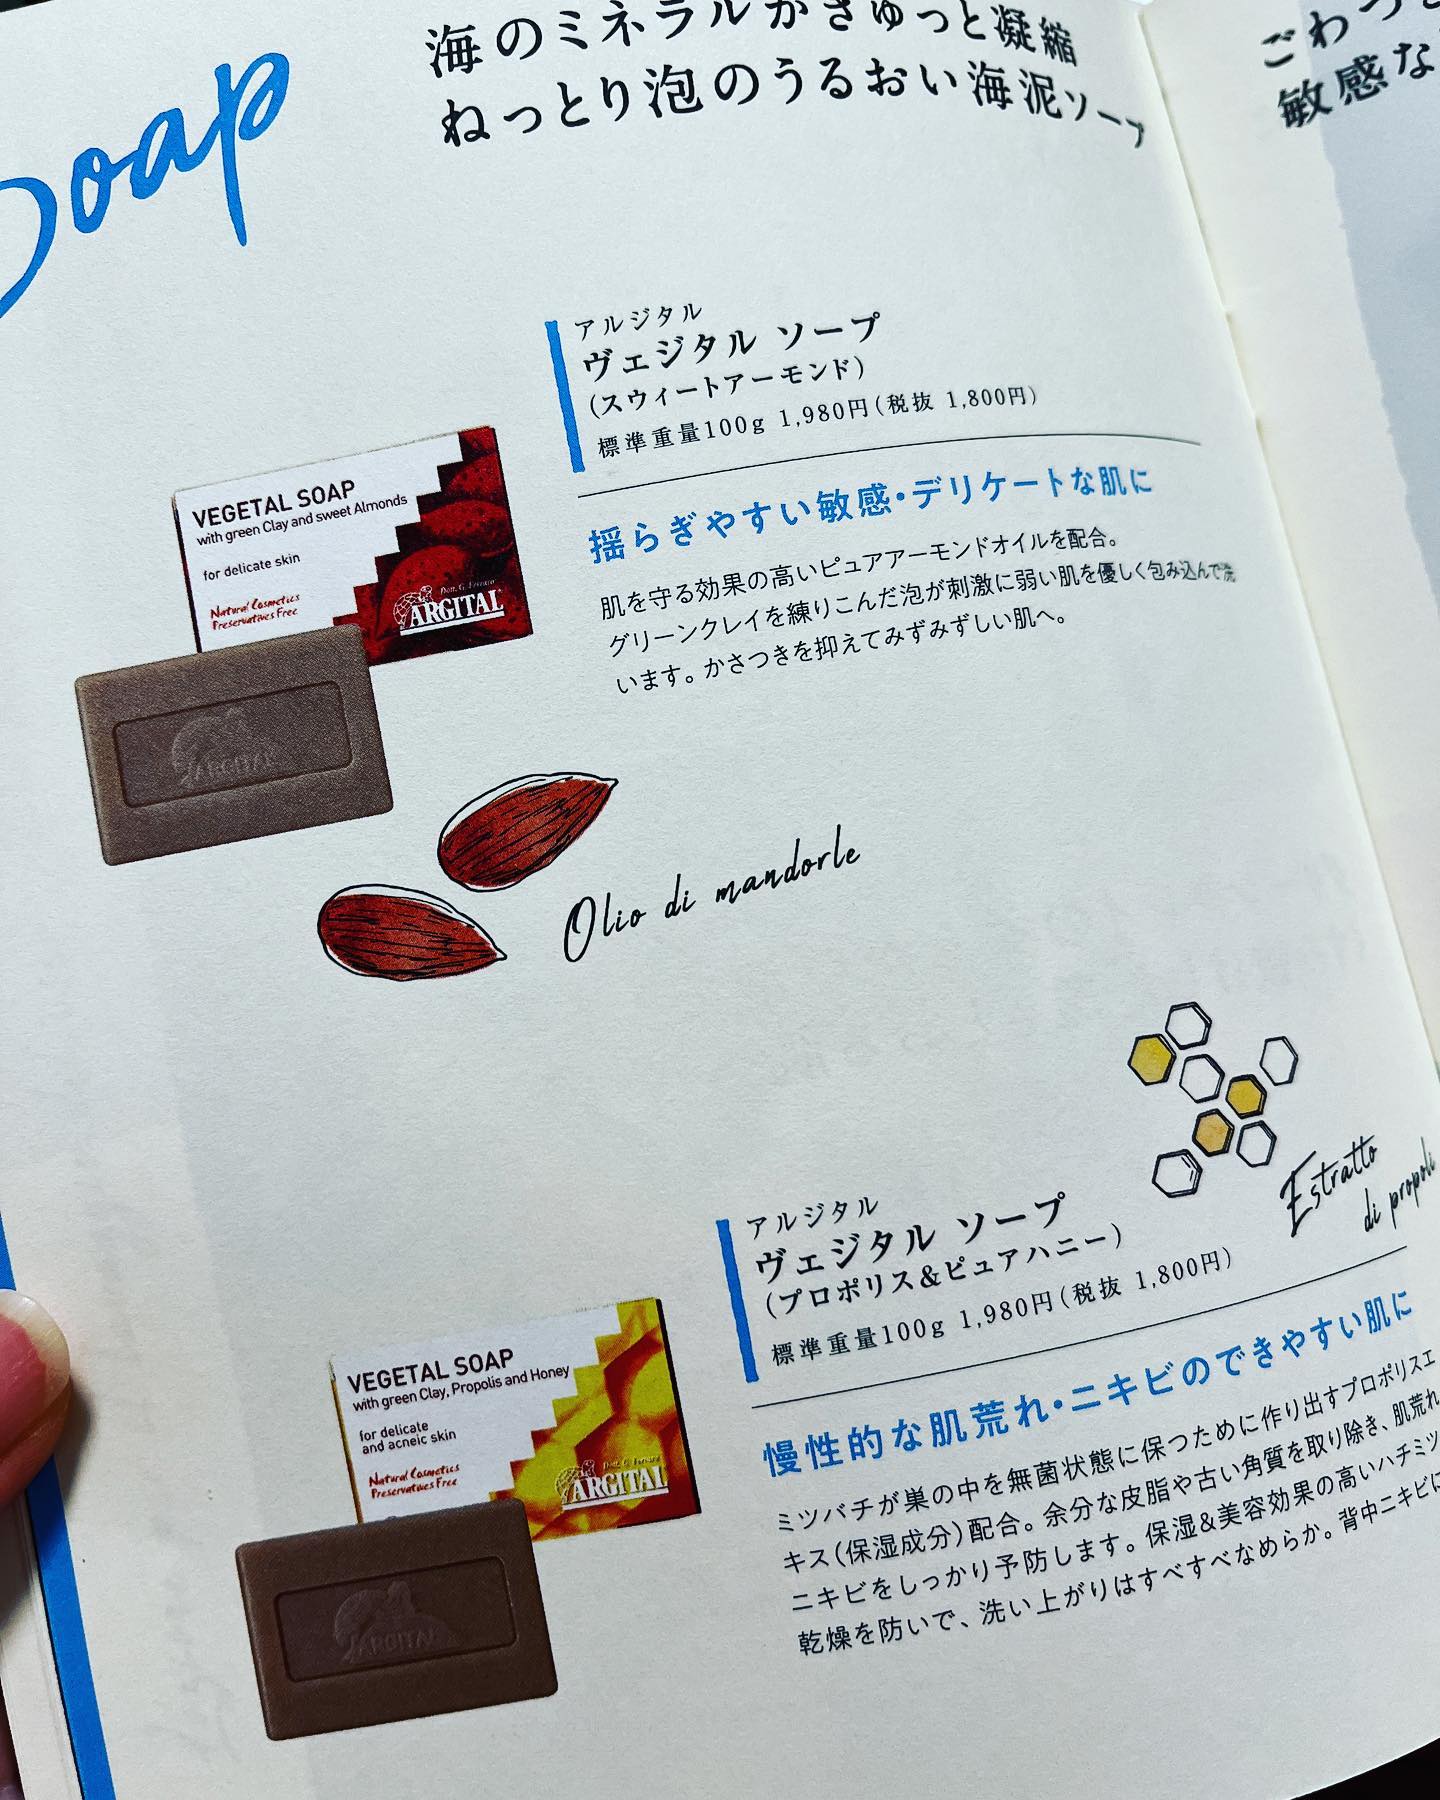 Soap
海のミネラルがぎゅっと凝縮
ねっとり泡のうるおい海泥ソープ
ごわつ
敏感な
アルジタル
ヴェジタル ソープ
(スウィートアーモンド)
標準重量100g 1,980円(税抜 1,800円)
揺らぎやすい敏感・デリケートな肌に
肌を守る効果の高いピュアアーモンドオイルを配合。
グリーンクレイを練りこんだ泡が刺激に弱い肌を優しく包み込んで洗
います。かさつきを抑えてみずみずしい肌へ。
VEGETAL SOAP
with green Clay and sweet Almonds
for delicate skin
Natural Cosmetics
Preservatives Free
Dott. G. Ferraro
ARGITAL
ARGITAL
Olio di mandorle
Estratto
di propoli
アルジタル
ヴェジタル ソープ
(プロポリス&ピュアハニー)
標準重量100g 1,980円(税抜 1,800円)
慢性的な肌荒れ・ニキビのできやすい肌に
ミツバチが巣の中を無菌状態に保つために作り出すプロポリスエ
キス(保湿成分)配合。余分な皮脂や古い角質を取り除き、肌荒れ
ニキビをしっかり予防します。保湿&美容効果の高いハチミツ
乾燥を防いで、洗い上がりはすべすべなめらか。背中ニキビに
VEGETAL SOAP
with green Clay, Propolis and Honey
for delicate
and acneic skin
Natural Cosmetics
Preservatives Free
Dott. G. Ferraro
ARGITAL
ARGITAL